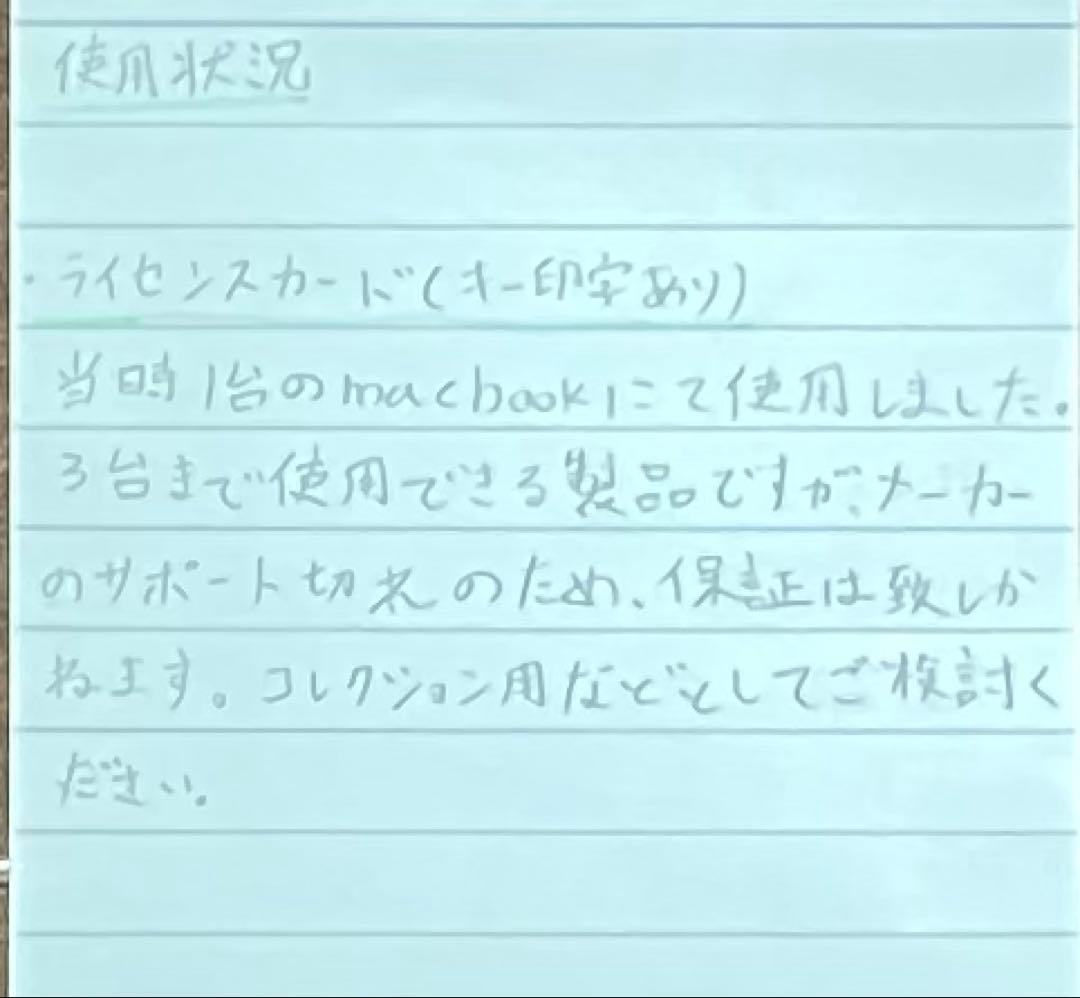 使用状況
・ライセンスカード(キー印字あり)
当時1台のmacbookにて使用しました。
3台まで使用できる製品ですが、メーカー
のサポート切れのため、保証は致しか
ねます。コレクション用などとしてご検討く
ださい。